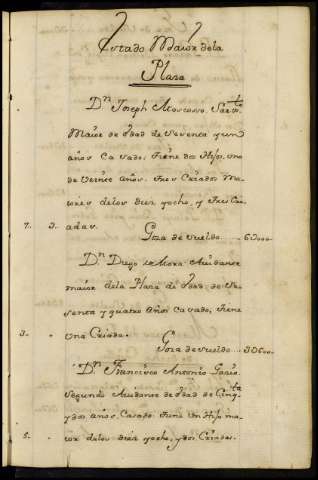 Estado Maior dela
Plaza
Dn. Joseph Moscoso Sarto.
Maior de Edad de Sesenta y un
años Casado. Tiene dos Hijos, uno
de veinte años. Tres Criados Ma
iores delos diez yocho, y tres Cri
7. 3. adas.
Goza de sueldo... 6000.
Dn. Diego de Mora Aiudante
maior dela Plaza de Edad de Se
senta y quatro años Casado, tiene
3. Una Criada.
Goza de sueldo... 3600.
Dn. Francisco Antonio
Segundo Aiudante de Edad de Cinqta.
ydos años. Casado. Tiene Un Hijo ma
5. ior delos diez yocho, ydos Criadas.